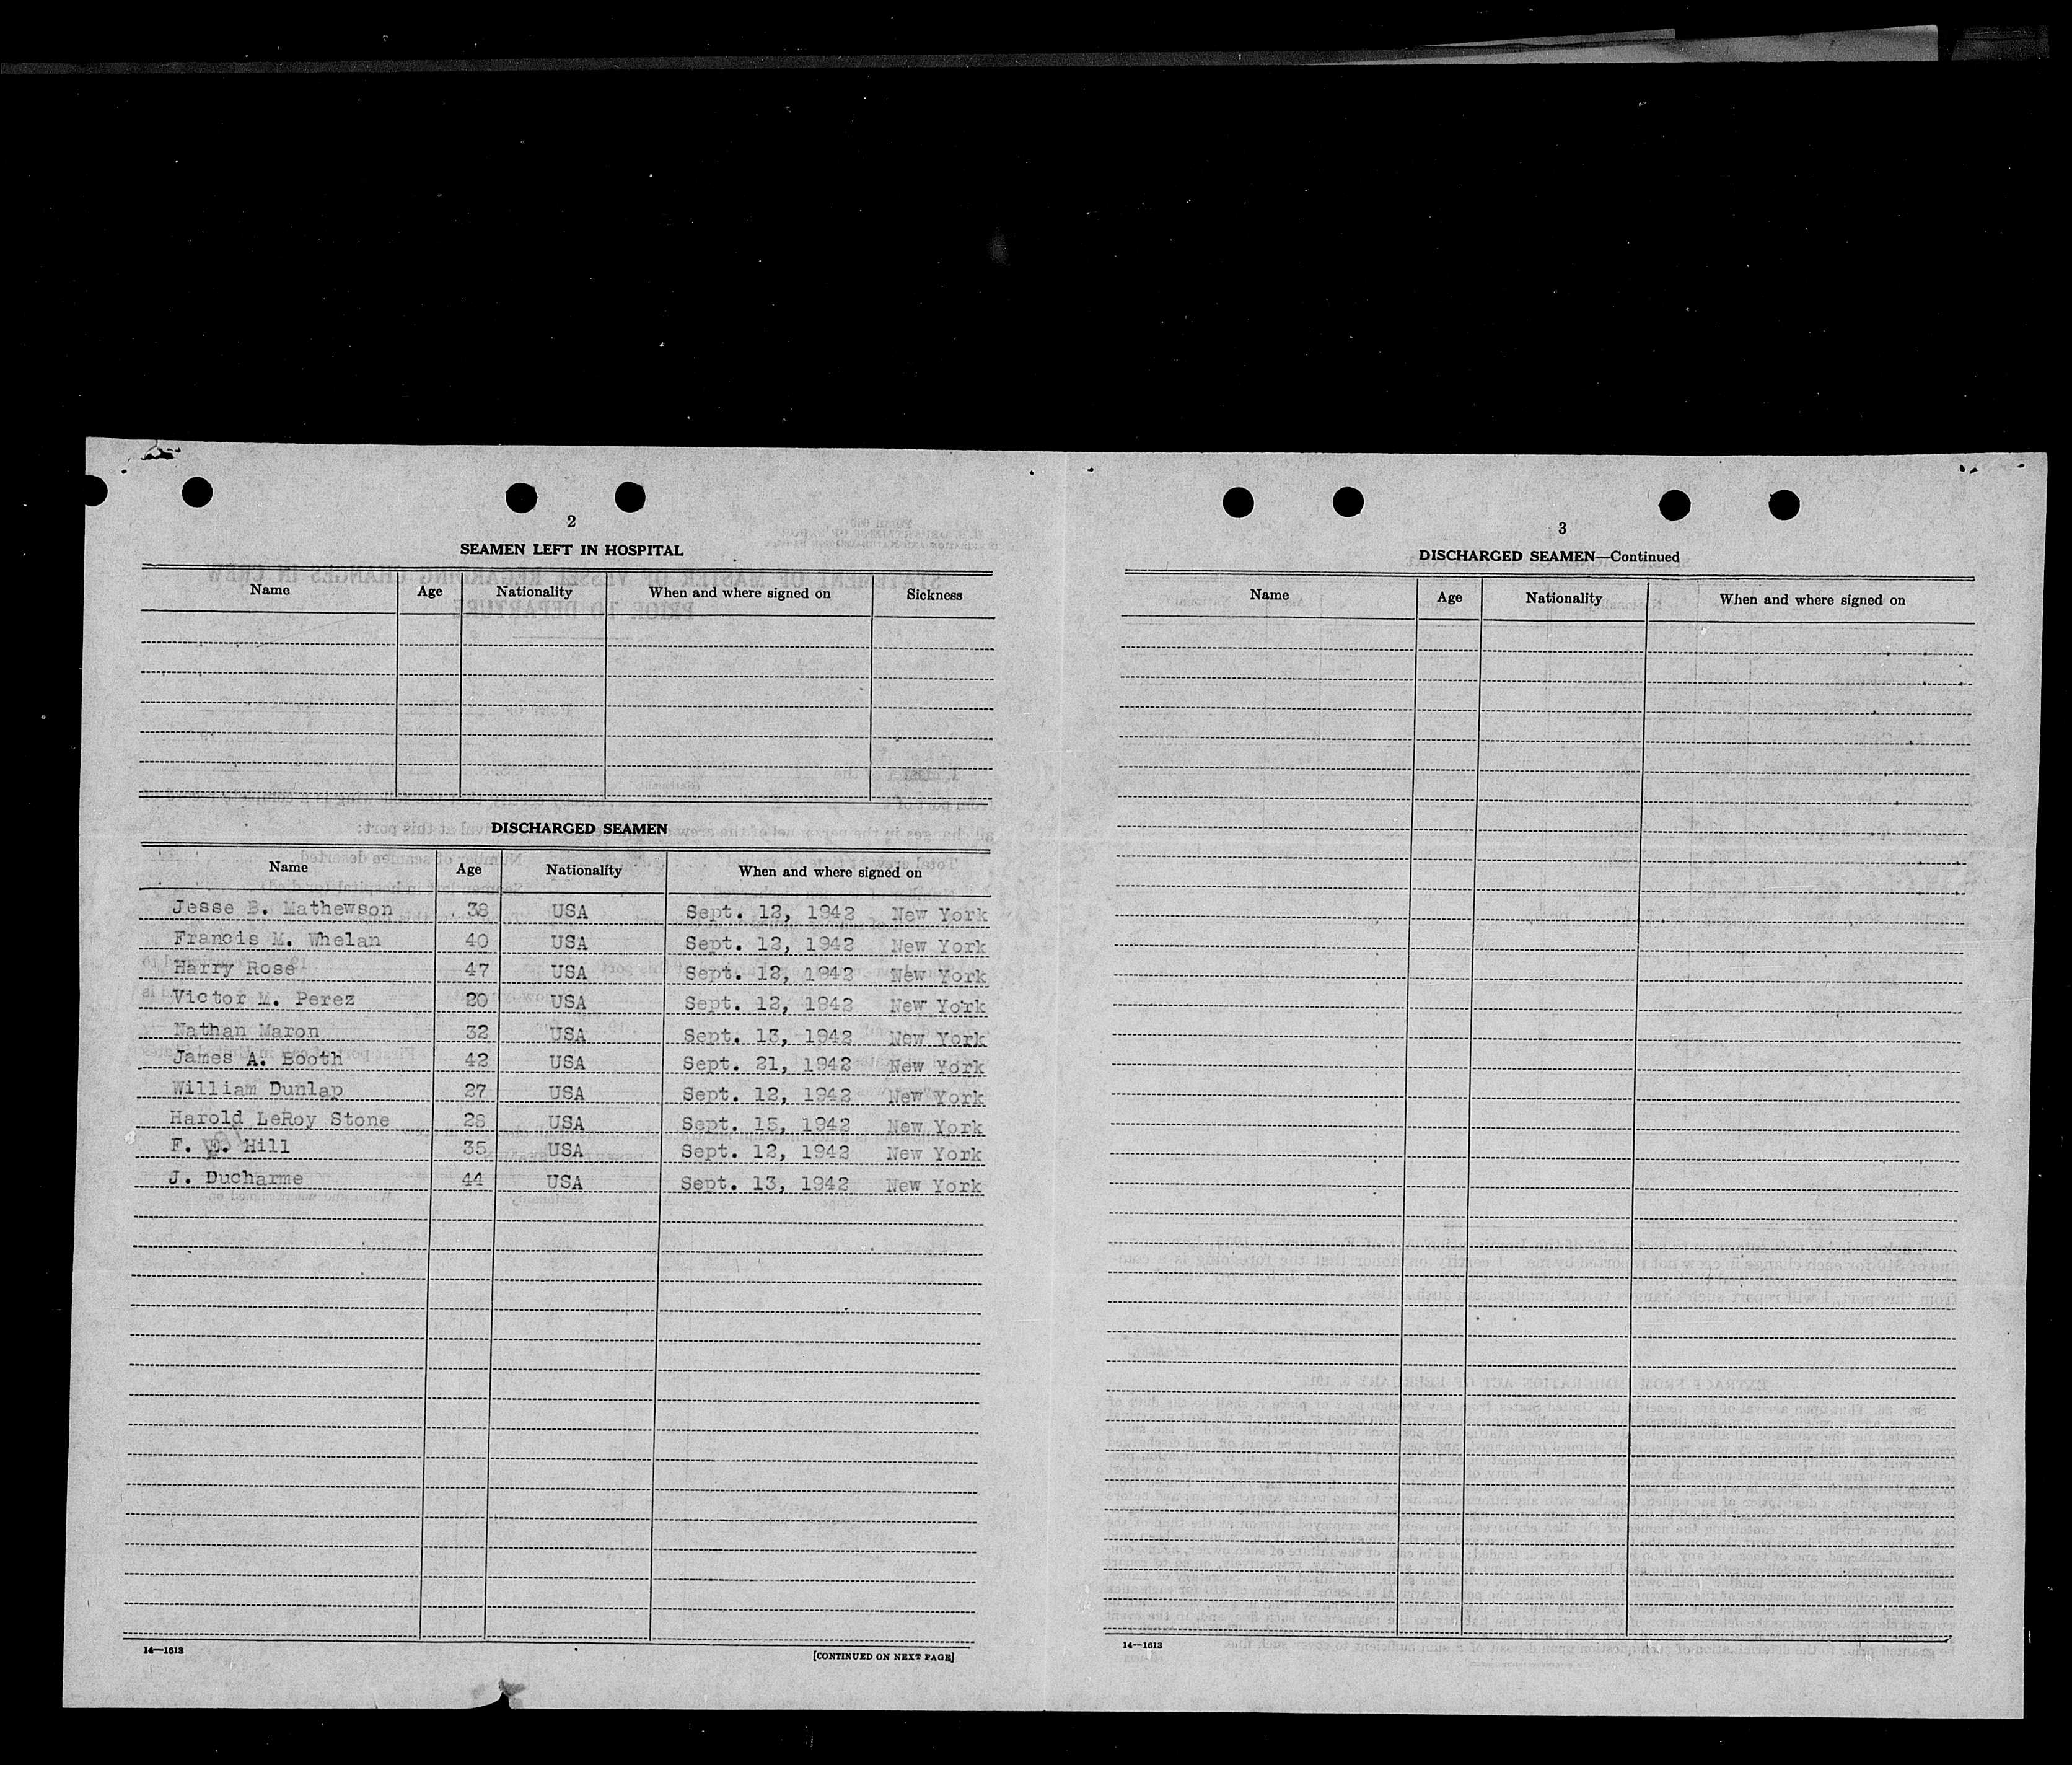 2
SEAMEN LEFT IN HOSPITAL
Name Age Nationality When and where signed on Sickness
DISCHARGED SEAMEN
Name Age Nationality When and where signed on
Jesse B. Mathewson 38 USA Sept. 12, 1942 New York
Francis M. Whelan 40 USA Sept. 12, 1942 New York
Harry Rose 47 USA Sept. 12, 1942 New York
Victor M. Perez 20 USA Sept. 12, 1942 New York
Nathan Maron 32 USA Sept. 13, 1942 New York
James A. Booth 42 USA Sept. 21, 1942 New York
William Dunlap 27 USA Sept. 12, 1942 New York
Harold LeRoy Stone 28 USA Sept. 15, 1942 New York
F. E. Hill 35 USA Sept. 12, 1942 New York
J. Ducharme 44 USA Sept. 13, 1942 New York
14—1613 [CONTINUED ON NEXT PAGE]
3
DISCHARGED SEAMEN—Continued
Name Age Nationality When and where signed on
14—1613